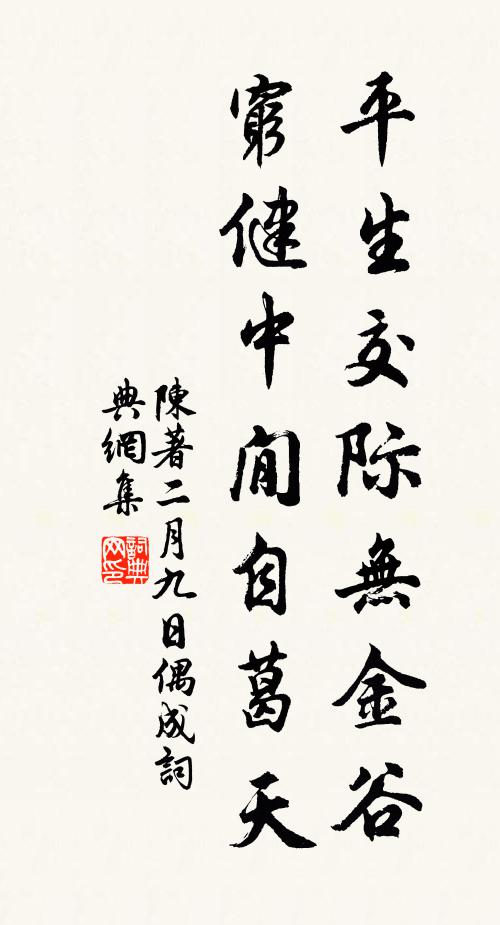 平生交际無金谷
窮健中閒自葛天
陳著二月九日偶成詞
典網集
詞典
网印